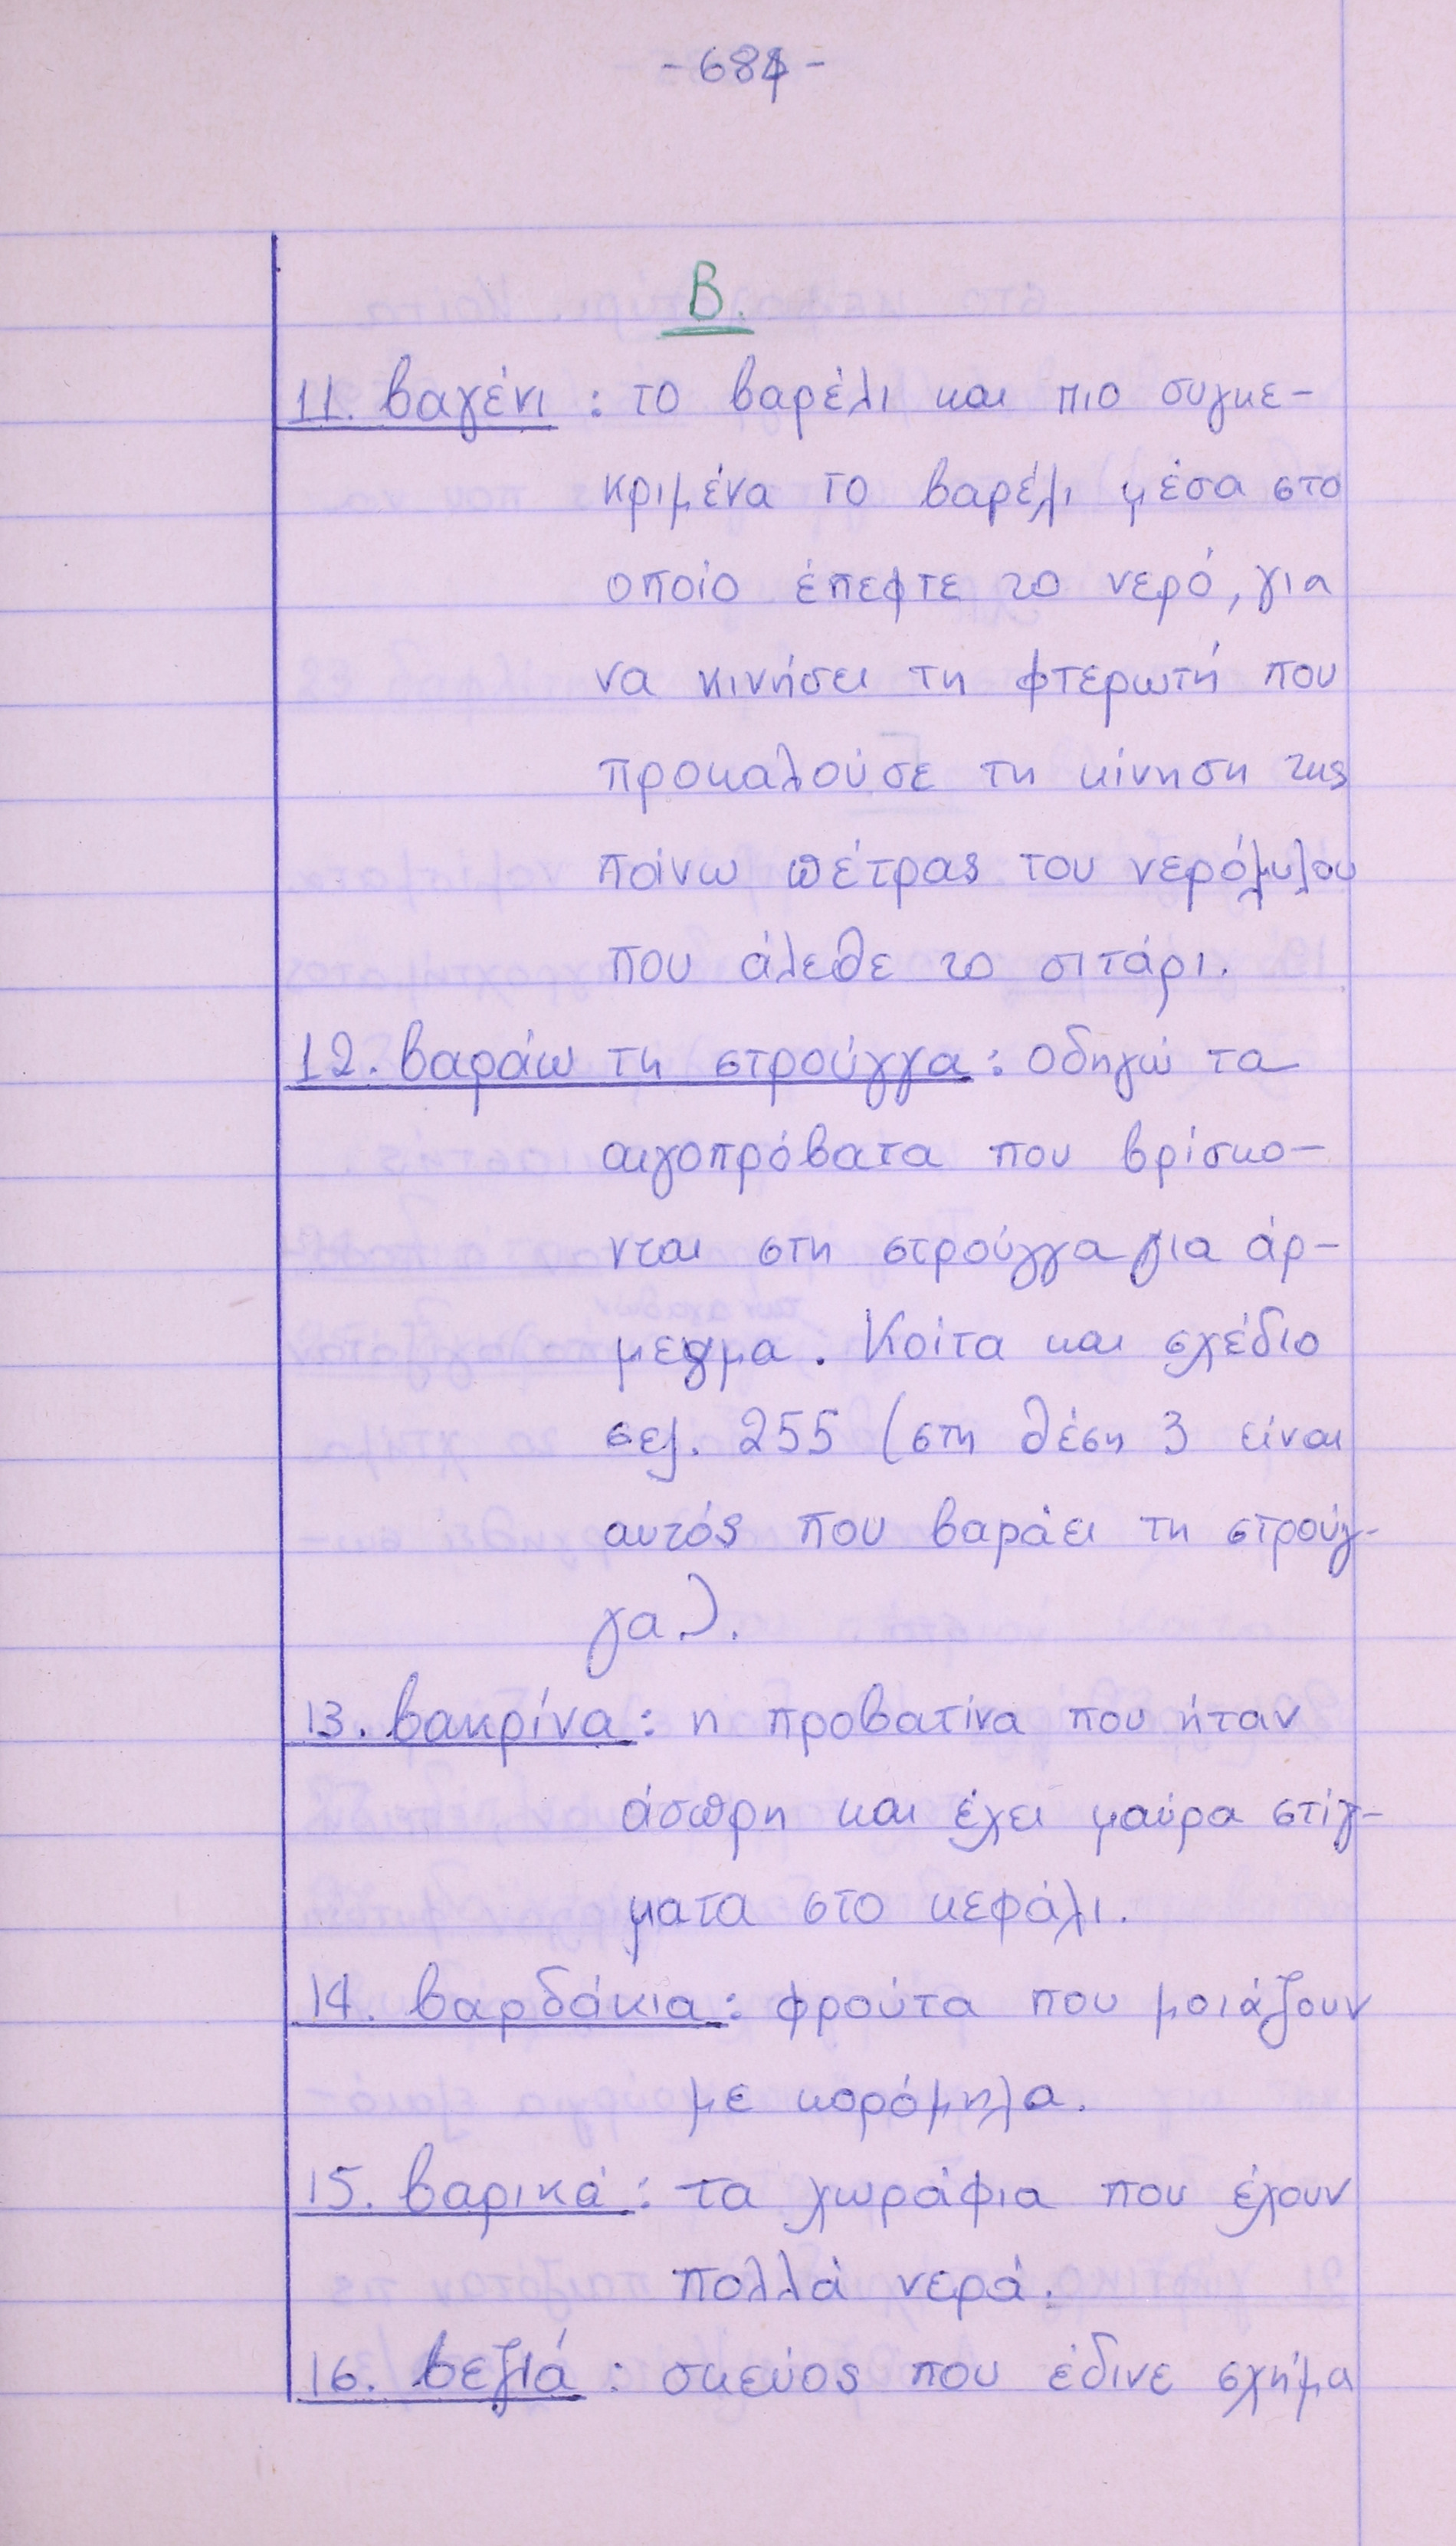 - 684 -
Β.
11. βαγένι : το βαρέλι και πιο συγκε-
κριμένα το βαρέλι μέσα στο
οποίο έπεφτε το νερό, για
να κινήσει τη φτερωτή που
προκαλούσε τη κίνηση της
πάνω πέτρας του νερόμυλου
που άλεθε το σιτάρι.
12. βαράω τη στρούγγα : οδηγώ τα
αιγοπρόβατα που βρίσκο-
νται στη στρούγγα για άρ-
μεγμα. Κοίτα και σχέδιο
σελ. 255 (στη θέση 3 είναι
αυτός που βαράει τη στρούγ-
γα.).
13. βακρίνα : η προβατίνα που ήταν
άσπρη και έχει μαύρα στίγ-
ματα στο κεφάλι.
14. βαρδάκια : φρούτα που μοιάζουν
με κορόμηλα.
15. βαρικά : τα χωράφια που έχουν
πολλά νερά.
16. βεζιά : σκεύος που έδινε σχήμα